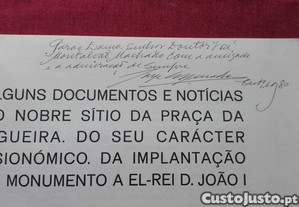 Montalvão Machado com a amizade
e a admiração de sempre
LGUNS DOCUMENTOS E NOTÍCIAS
O NOBRE SÍTIO DA PRAÇA DA
GUEIRA. DO SEU CARÁCTER
SIONÓMICO. DA IMPLANTAÇÃO
MONUMENTO A EL-REI D. JOÃO I
CustoJusto.pt